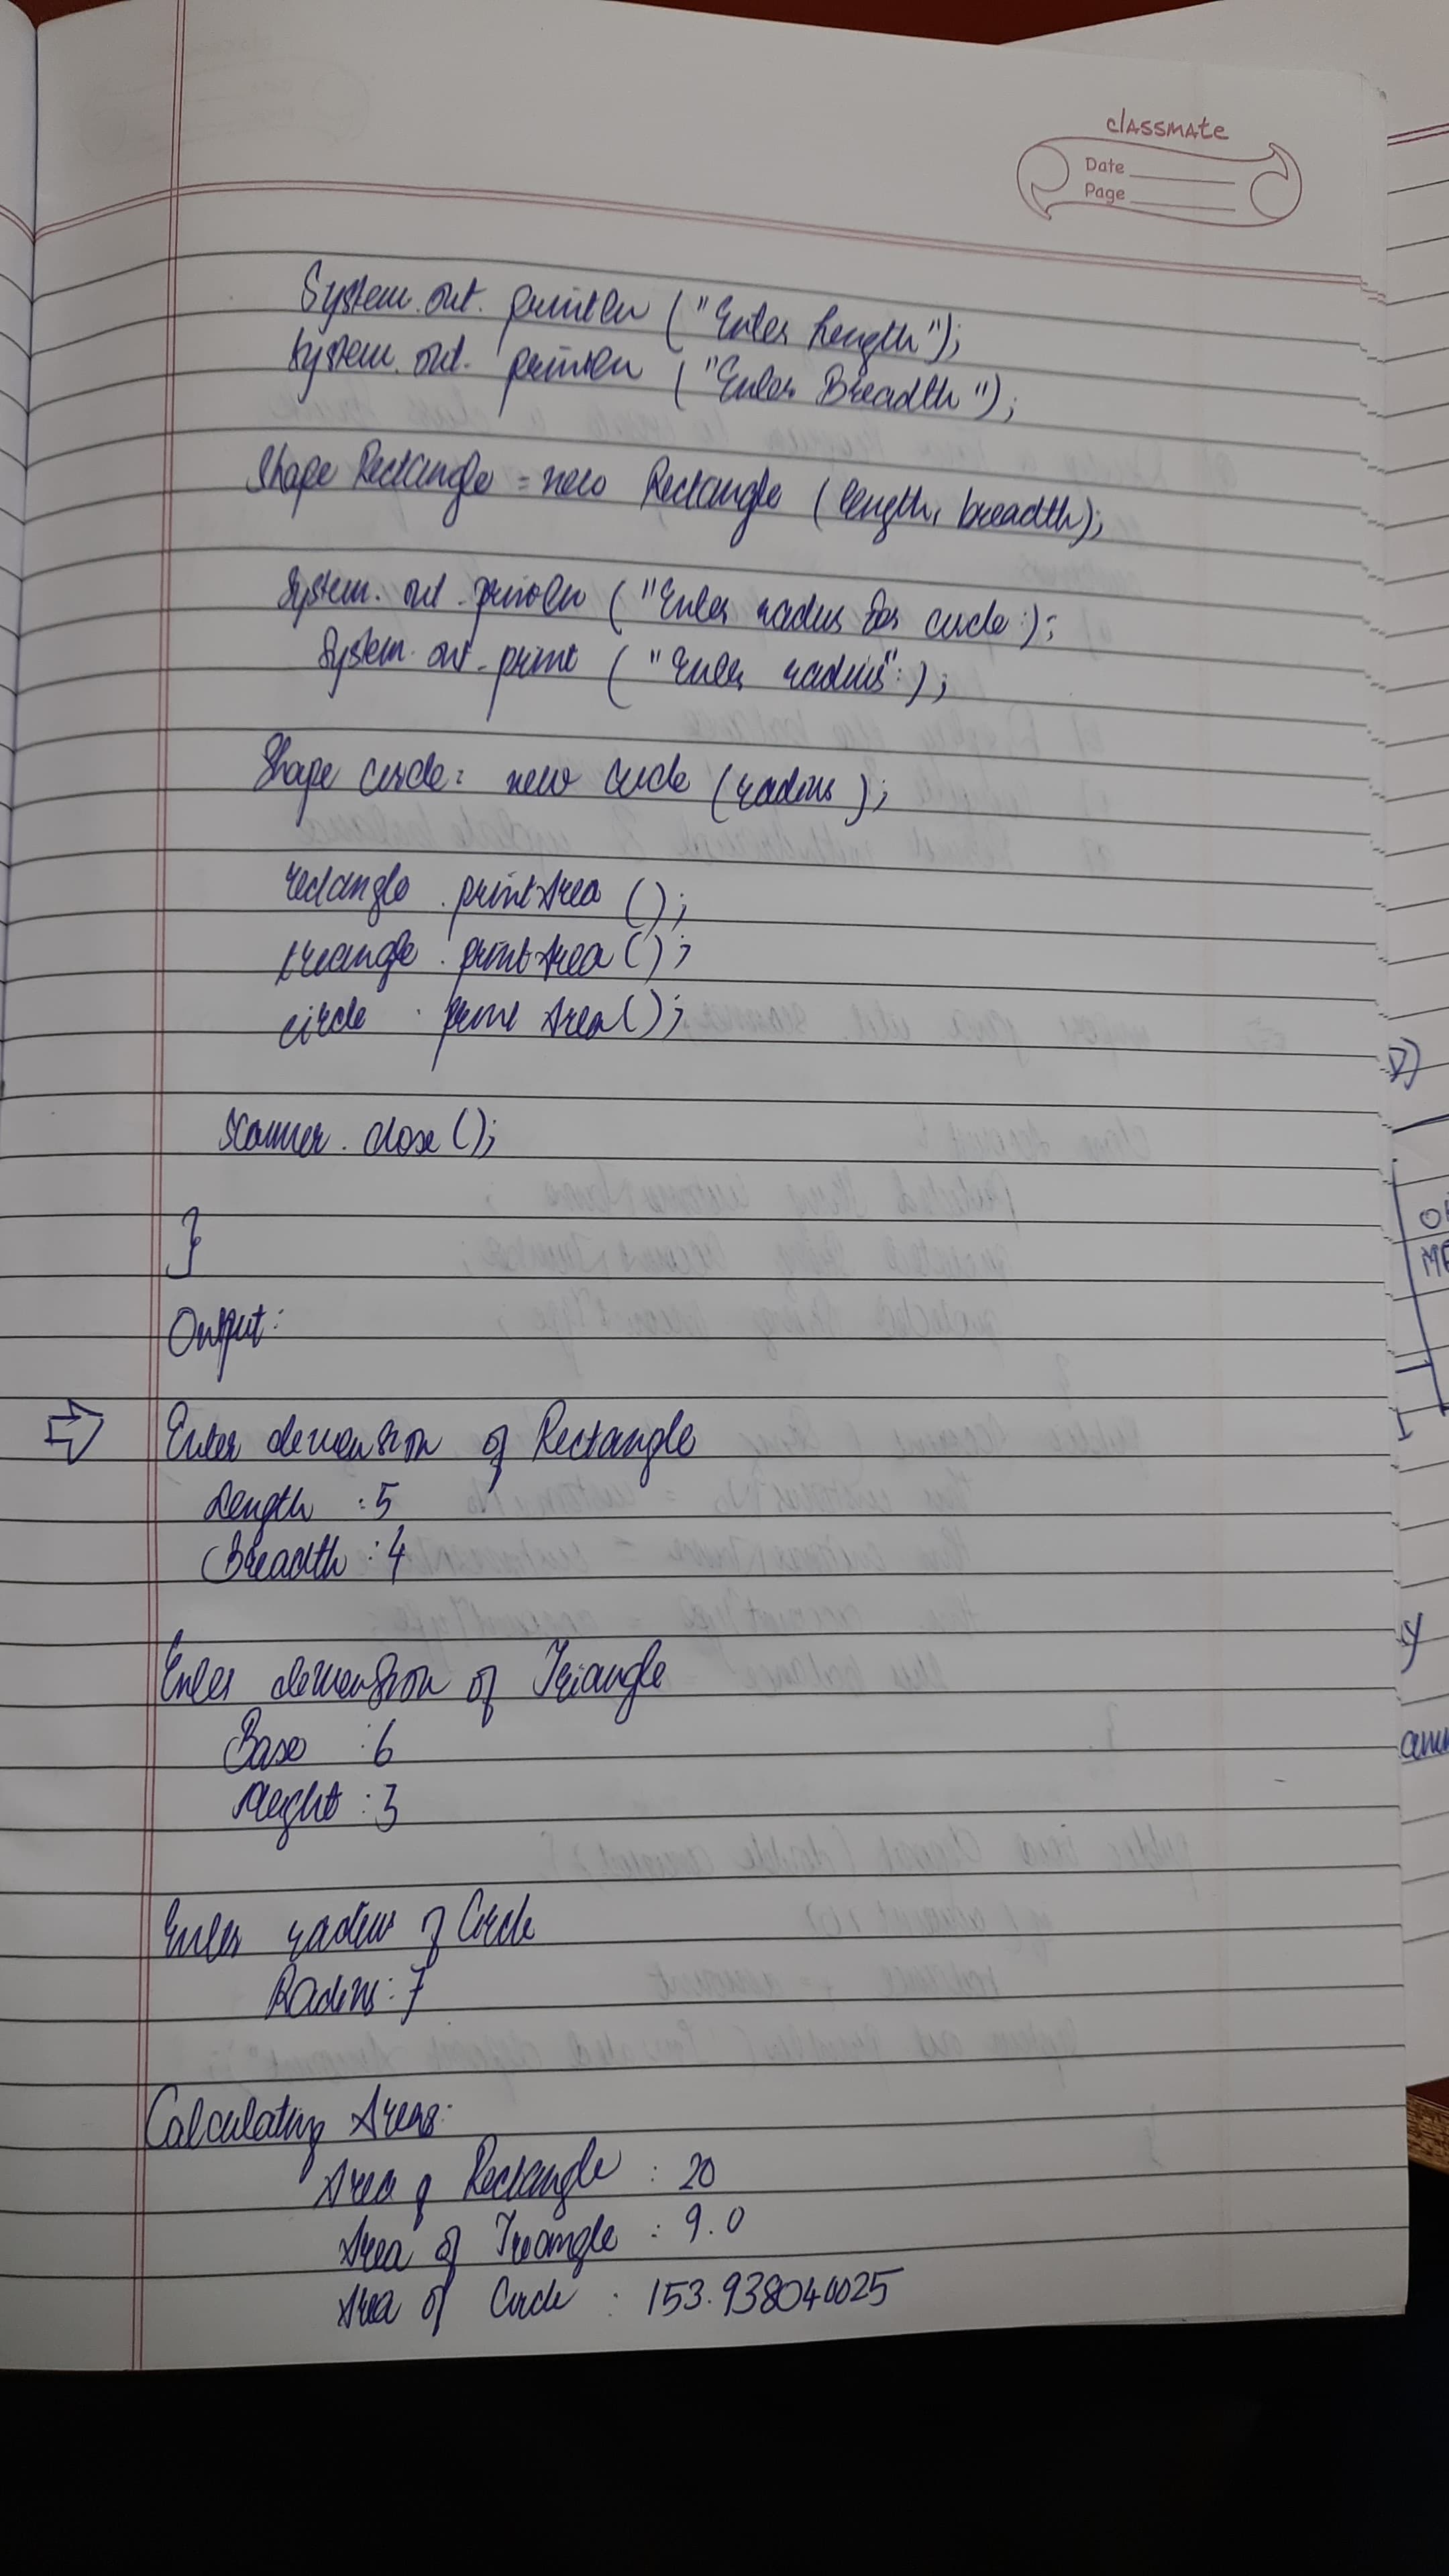 classmate
Date
Page
System.out.println ("Enter Length");
System.out.println ("Enter Breadth");
Shape Rectangle = new Rectangle (length, breadth);
System.out.println ("Enter radius for circle:);
System.out.print ("Enter radius":);
Shape circle = new circle (radius);
rectangle.printArea ();
treangle.printArea ();
circle.print Area();
scanner.close ();
}
Output:
Enter demension of Rectangle
Length : 5
Breadth : 4
Enter demension of Triangle
Base : 6
Height : 3
Enter radius of Circle
Radius : 7
Calculating Areas:
Area of Rectangle : 20
Area of Triangle : 9.0
Area of Circle : 153.938040025